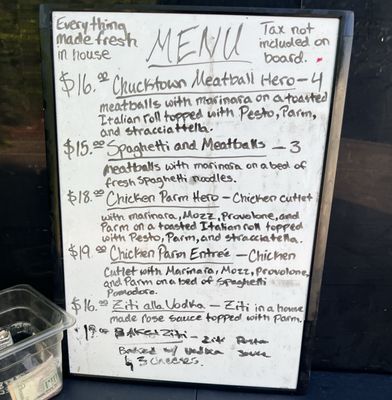 Everything
made fresh
in house
MENU
Tax not
included on
board.
$16.00 Chucktown Meatball Hero - 4
meatballs with marinara on a toasted
Italian roll topped with Pesto, Parm,
and stracciatella.
$15.00 Spaghetti and Meatballs - 3
meatballs with marinara on a bed of
fresh spaghetti noodles.
$18.00 Chicken Parm Hero - Chicken cutlet
with marinara, Mozz, Provolone, and
Parm on a toasted Italian roll topped
with Pesto, Parm, and stracciatella.
$19.00 Chicken Parm Entrée - Chicken
Cutlet with Marinara, Mozz, Provolone,
and Parm on a bed of Spaghetti
Pomodoro.
$16.00 Ziti alla Vodka - Ziti in a house
made rose sauce topped with Parm.
Baked Ziti - Ziti Pasta
Baked w/ Vodka Sauce
3 Cheeses.